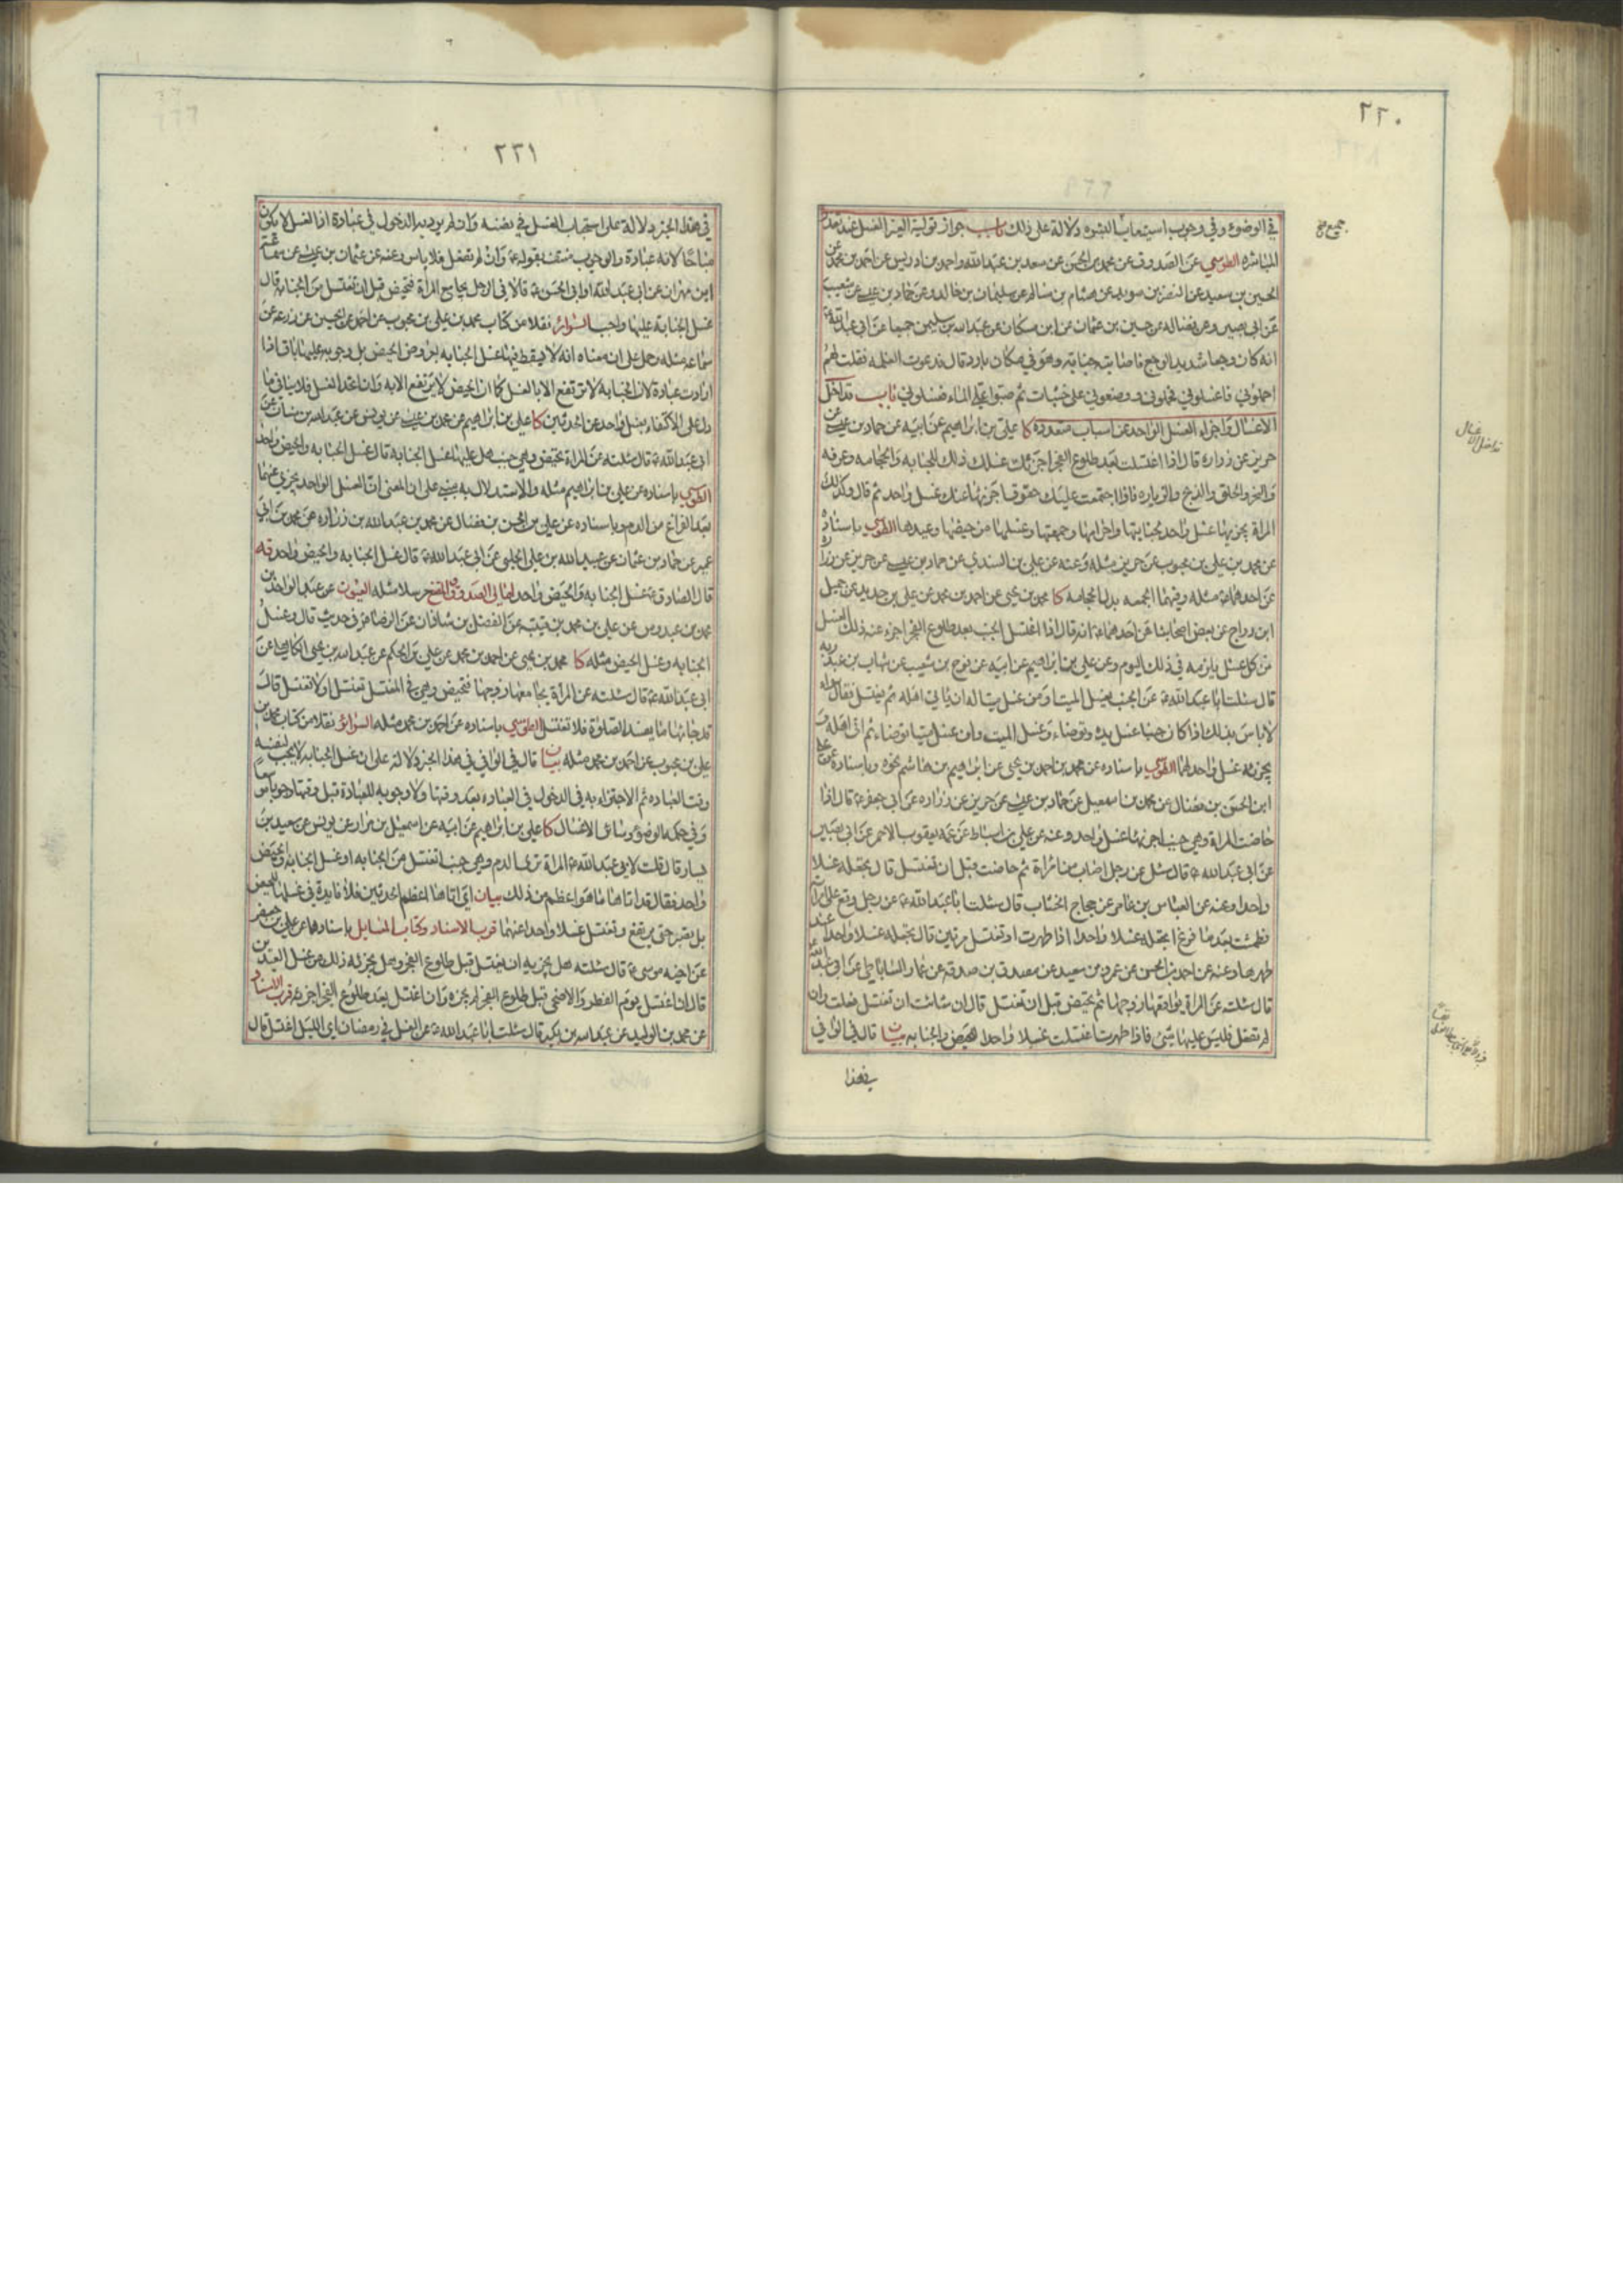 ٢٢٠
في الوضوء وفي وجوب استيعاب البشره دلالة على ذلك باب جواز تولية الغير الغسل عند تعذر
المباشره الطوسي عن الصدوق عن محمد بن الحسن عن سعد بن عبد الله واحمد بن ادريس عن احمد بن محمد عن
الحسين بن سعيد عن النضر بن سويد عن هشام بن سالم عن سليمان بن خالد وعن حماد بن عيسى عن شعيب
عن ابي بصير وعن فضاله عن حسين بن عثمان عن ابن مسكان عن عبد الله بن سليمن جميعا عن ابي عبد الله
انه كان وجعا شديد الوجع فاصابته جنابه وهو في مكان بارد قال فدعوت الغلمه فقلت لهم
احملوني فاغسلوني فحملوني ووضعوني على خشبات ثم صبوا علي الماء فغسلوني باب تداخل
الاغسال واجزاء الغسل الواحد عن اسباب متعددة كا علي بن ابراهيم عن ابيه عن حماد بن عيسى عن
حريز عن زراره قال اذا اغتسلت بعد طلوع الفجر اجزئك غسلك ذلك للجنابه والحجامه وعرفه
والنحر والحلق والذبح والزياره فاذا اجتمعت عليك حقوق اجزئها عنك غسل واحد ثم قال وكذلك
المراة يجزيها غسل واحد لجنابتها واحرامها وجمعتها وغسلها من حيضها وعيدها الطوسي باسناده
عن محمد بن علي بن محبوب عن حريز مثله وعنه عن علي بن السندي عن حماد بن عيسى عن حريز عن زراره
عن احدهما مثله وفيها الجمعه بدل الحجامه كا محمد بن يحيى عن احمد بن محمد عن علي بن حديد عن جميل
ابن دراج عن بعض اصحابنا عن احدهما انه قال اذا اغتسل الجنب بعد طلوع الفجر اجزء عنه ذلك الغسل
من كل غسل يلزمه في ذلك اليوم وعن علي بن ابراهيم عن ابيه عن نوح بن شعيب عن شهاب بن عبد ربه
قال سئلت ابا عبد الله عن الجنب يغسل الميت او من غسل ميتا له ان ياتي اهله ثم يغتسل فقال
لا باس بذلك اذا كان جنبا غسل يده وتوضاء وغسل الميت وان غسل ميتا توضاء ثم اتى اهله و
يجزئه غسل واحد لهما الطوسي باسناده عن محمد بن احمد بن يحيى عن ابراهيم بن هاشم نحوه وباسناده عن علي
ابن الحسن بن فضال عن محمد بن اسمعيل عن حماد بن عيسى عن حريز عن زراره عن ابي جعفر قال اذا
حاضت المراة وهي جنب اجزئها غسل واحد وعنه عن علي بن اسباط عن عمه يعقوب الاحمر عن ابي بصير
عن ابي عبد الله قال سئل عن رجل اصاب من امراة ثم حاضت قبل ان تغتسل قال تجعله غسلا
واحدا وعنه عن العباس بن عامر عن حجاج الخشاب قال سئلت ابا عبد الله عن رجل وقع على امراته
فطمثت بعد ما فرغ اتجعله غسلا واحدا اذا طهرت او تغتسل مرتين قال تجعله غسلا واحدا عند
طهرها وعنه عن احمد بن الحسن عن عمرو بن سعيد عن مصدق بن صدقه عن عمار الساباطي عن ابي عبد الله
قال سئلته عن المراة يواقعها زوجها ثم تحيض قبل ان تغتسل قال ان شائت ان تغتسل فعلت وان
لم تفعل فليس عليها شئ فاذا طهرت اغتسلت غسلا واحدا للحيض والجنابه بيان قال في الوافي
في هذا
تداخل الاغسال
٢٢١
في هذا الخبر دلالة على استحباب الغسل في نفسه وان لم يرد به الدخول في عبادة اذ الغسل لا يكون
مباحا لانه عبادة والوجوب منتف بقوله وان لم تفعل فلا باس وعنه عن عثمان بن عيسى عن سماعه
ابن مهران عن ابي عبد الله وابي الحسن قالا في الرجل يجامع المراة فتحيض قبل ان تغتسل من الجنابه قال
غسل الجنابة عليها واجب السرائر نقلا من كتاب محمد بن علي بن محبوب عن احمد عن الحسين عن زرعه عن
سماعه مثله وحمل على ان معناه انه لا يسقط فيها غسل الجنابه بعروض الحيض بل وجوبه عليها باق اذا
ارادت عبادة لان الجنابة لا ترتفع الا بالغسل كما ان الحيض لا يرتفع الا به وان اتحد الغسل فلا ينافي ما
دل على الاكتفاء بغسل واحد عن الحدثين كا علي بن ابراهيم عن محمد بن عيسى عن يونس عن عبد الله بن سنان عن
ابي عبد الله قال سئلته عن المراة تحيض وهي جنب هل عليها غسل الجنابة قال غسل الجنابه والحيض واحد
الطوسي باسناده عن علي بن ابراهيم مثله والاستدلال به مبني على ان المعنى ان الغسل الواحد يجزي عنهما
بعد الفراغ من الدم وباسناده عن علي بن الحسن بن فضال عن محمد بن عبد الله بن زراره عن محمد بن ابي
عمير عن حماد بن عثمان عن عبيد الله بن علي الحلبي عن ابي عبد الله قال غسل الجنابه والحيض واحد قه
قال الصادق غسل الجنابه والحيض واحد امالي الصدوق والمقنع مرسلا مثله العيون عن عبد الواحد بن
محمد بن عبدوس عن علي بن محمد بن قتيبه عن الفضل بن شاذان عن الرضا في حديث قال وغسل
الجنابه وغسل الحيض مثله كا محمد بن يحيى عن احمد بن محمد عن علي بن الحكم عن عبد الله بن يحيى الكاهلي عن
ابي عبد الله قال سئلته عن المراة يجامعها زوجها فتحيض وهي في المغتسل تغتسل او لا تغتسل قال
قد جائها ما يفسد الصلوة فلا تغتسل الطوسي باسناده عن احمد بن محمد مثله السرائر نقلا من كتاب محمد بن
علي بن محبوب عن احمد بن محمد مثله بيان قال في الوافي في هذا الخبر دلالة على ان غسل الجنابه لا يجب لنفسه
وقت العباده ثم الاجتزاء به في الدخول في العباده بعد وقتها ولا وجوبه للعبادة قبل وقتها وجوبا
وفي حكمه الوضوء وسائر الاغسال كا علي بن ابراهيم عن ابيه عن اسمعيل بن مرار عن يونس عن سعيد بن
يسار قال قلت لابي عبد الله المراة ترى الدم وهي جنب اتغتسل من الجنابه او غسل الجنابه والحيض
واحد فقال قد اتاها ما هو اعظم من ذلك بيان اي اتاها اعظم الحدثين فلا فايدة في غسلها للحيض
بل تصبر حتى يرتفع وتغتسل غسلا واحدا عنهما قرب الاسناد وكتاب المسايل باسنادهما عن علي بن جعفر
عن اخيه موسى قال سئلته هل يجزيه ان يغتسل قبل طلوع الفجر وهل يجزئه ذلك من غسل العيدين
قال ان اغتسل يوم الفطر والاضحى قبل طلوع الفجر لم يجزه وان اغتسل بعد طلوع الفجر اجزءه قرب الاسناد
عن محمد بن الوليد عن عبد الله بن بكير قال سئلت ابا عبد الله عن الغسل في رمضان اي الليل اغتسل قال